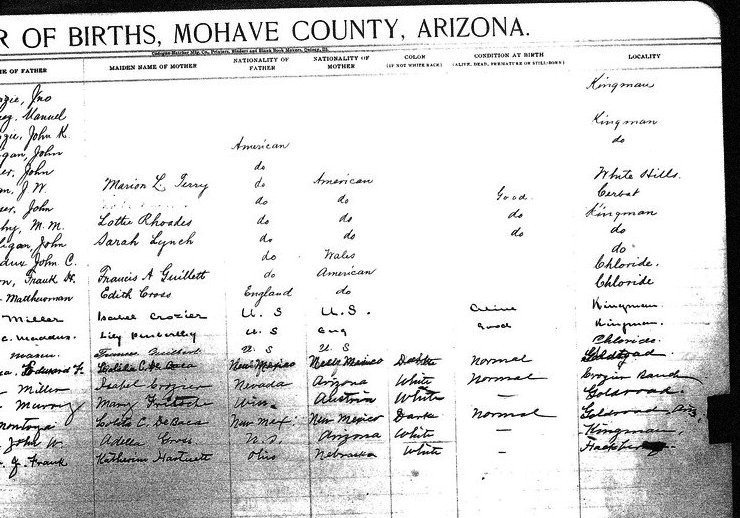 R OF BIRTHS, MOHAVE COUNTY, ARIZONA.
E OF FATHER MAIDEN NAME OF MOTHER NATIONALITY OF FATHER NATIONALITY OF MOTHER COLOR (IF NOT WHITE RACE) CONDITION AT BIRTH (ALIVE, DEAD, PREMATURE OR STILL-BORN) LOCALITY
zie, Jno Kingman
Manuel Kingman
gzie, John K. do
gan, John American
er, John do White Hills.
n, J. W. Marion L. Terry do American Cerbat
ser, John do do Good. Kingman
hy, M. M. Lottie Rhoades do do do do
ligan, John Sarah Lynch do do do do
dux John C. do Wales Chloride.
on, Frank H. Francis A Guillett do American Chloride
Matthewman Edith Cross England do
Miller Isabel Crozier U. S U. S. Kingman.
Lily U. S Eng Good Kingman.
U. S U. S Chloride.
Edward F. New Mexico New Mexico Dark Normal Goldroad
Miller Isabel Crozier Nevada Arizona White Normal Crozier
Murray Mary Wis. Austria White — Goldroad.
Montoya Lolita C. DeBaca New Mex. New Mexico Dark Normal Goldroad, Ariz
John W. Adella Cross Arizona White — Kingman,
Frank Katherine Hartnett Ohio Nebraska White — Hackberry